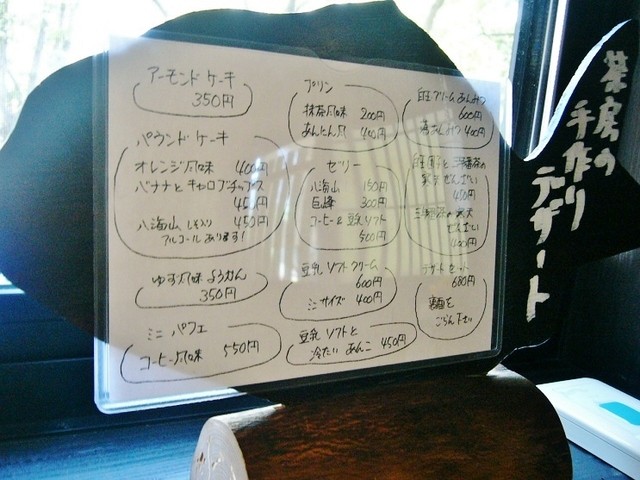 茶房の
手作り
デザート
アーモンドケーキ
350円
パウンドケーキ
オレンジ風味 400円
バナナとキャロブチップス
450円
八海山、しそ入り 450円
アルコールあります!
ゆず風味ようかん
350円
ミニ パフェ
コーヒー風味 550円
プリン
抹茶風味 200円
400円
ゼリー
八海山 150円
巨峰 300円
コーヒー&豆乳ソフト
500円
豆乳ソフトクリーム
600円
ミニサイズ 400円
豆乳ソフトと
冷たいあんこ 450円
クリームあんみつ
600円
あんみつ 400円
ぜんざい
450円
ぜんざい
400円
デザートセット
680円
裏面を
ごらん下さい